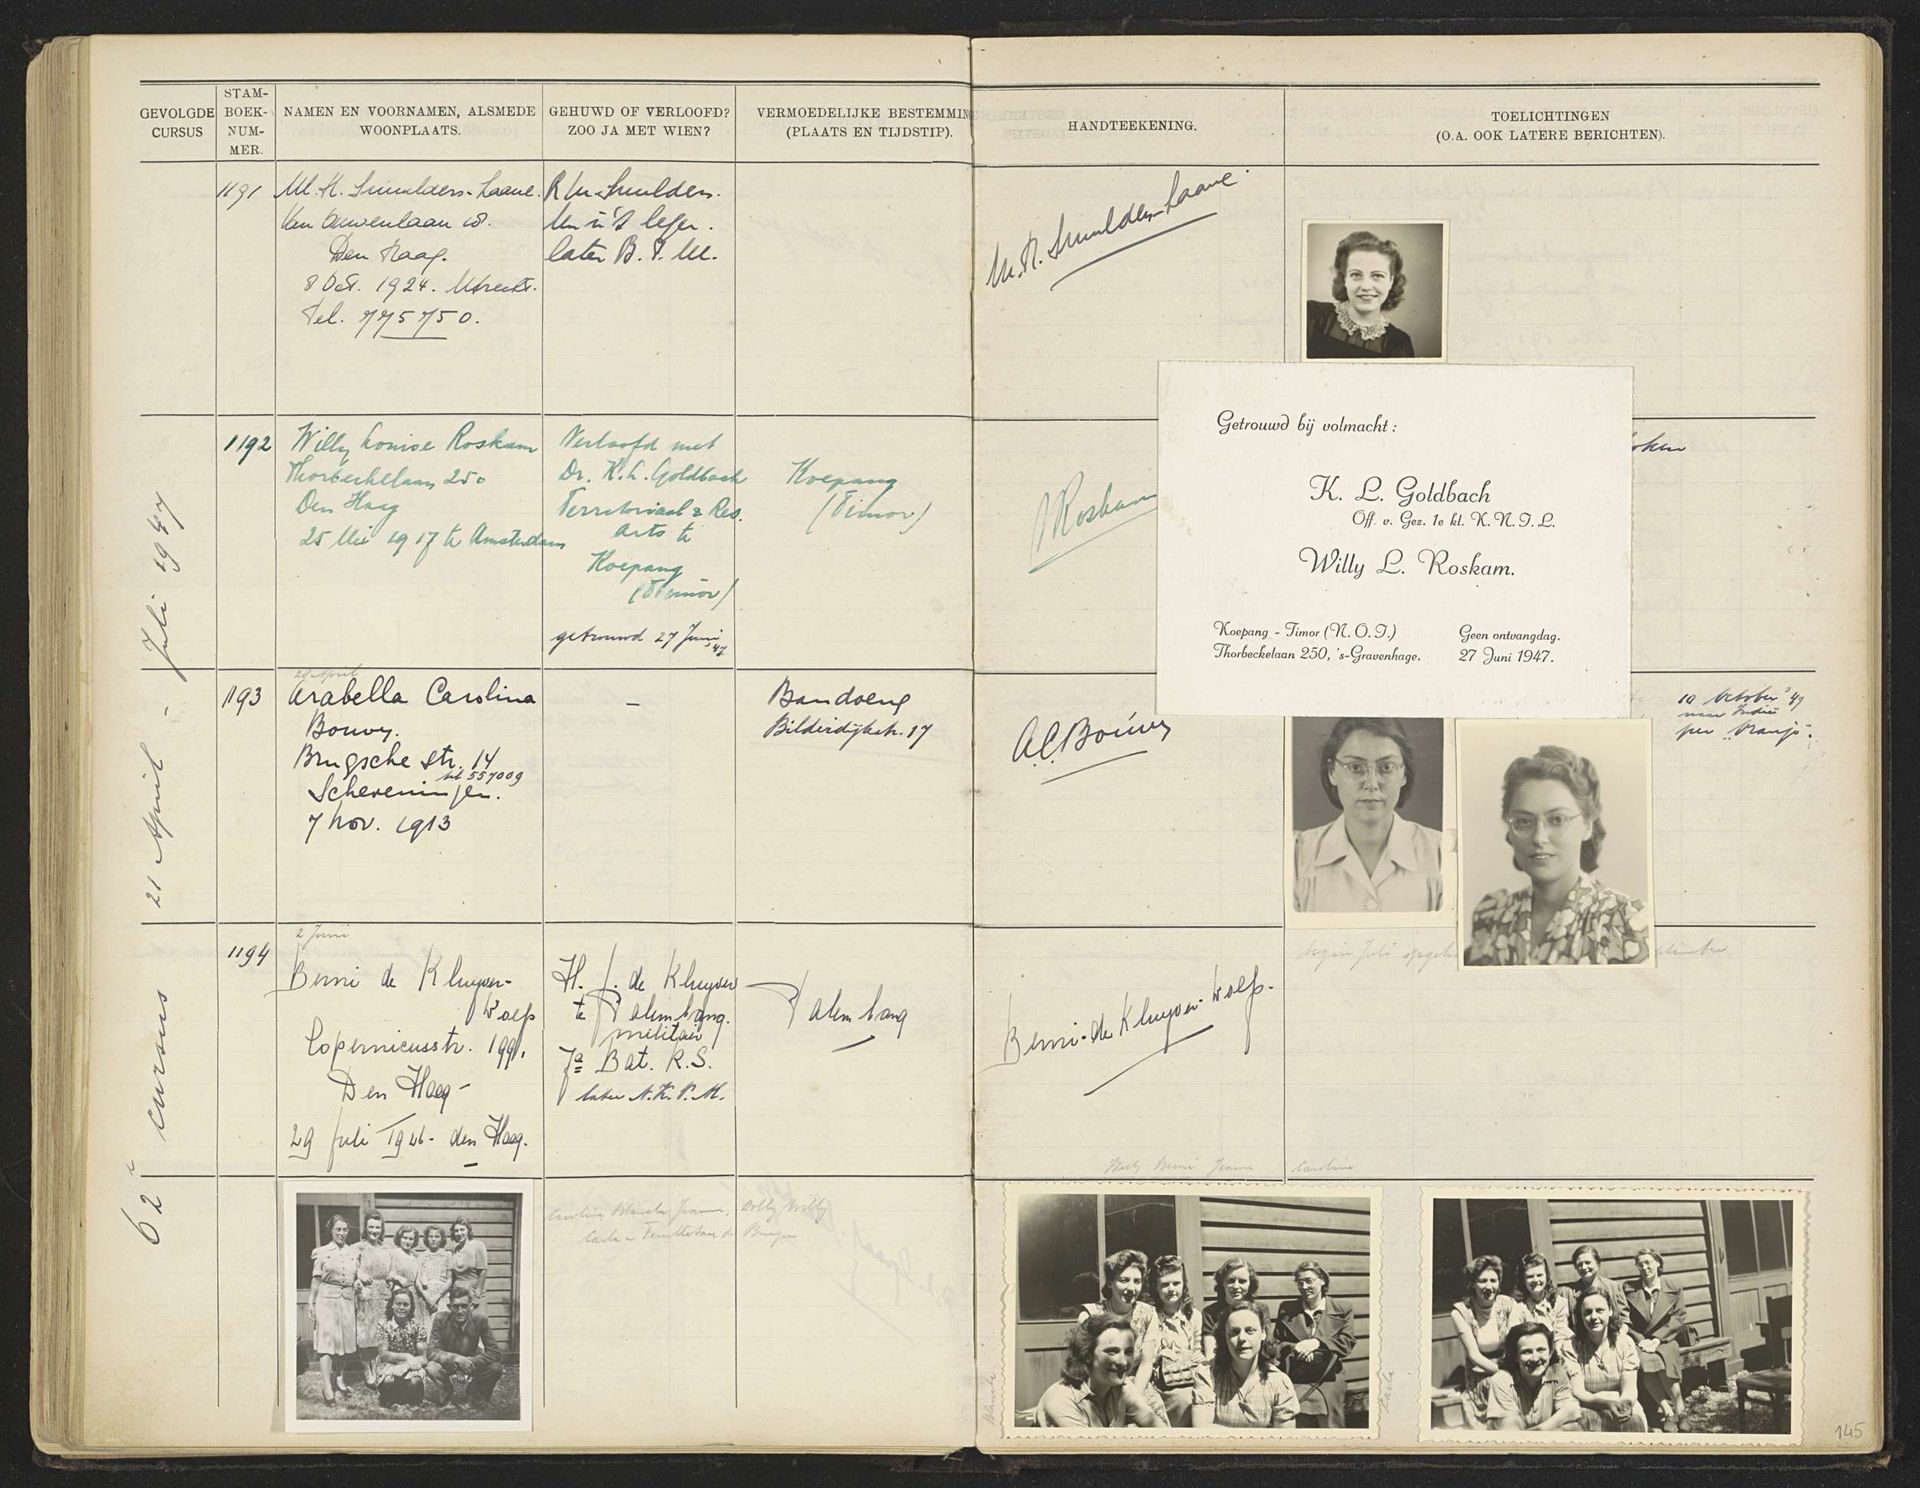 GEVOLGDE
CURSUS
STAM-
BOEK-
NUM-
MER.
NAMEN EN VOORNAMEN, ALSMEDE
WOONPLAATS.
GEHUWD OF VERLOOFD?
ZOO JA MET WIEN?
VERMOEDELIJKE BESTEMMIN
(PLAATS EN TIJDSTIP).
HANDTEEKENING.
TOELICHTINGEN
(O.A. OOK LATERE BERICHTEN).
62e cursus 21 April - Juli 1947
1191
M. K. Smulders-Laane.
Den Haag.
8 Oct. 1924. Utrecht.
Tel. 775750.
R M Smulders.
Nu in 't leger.
later B.P.M.
Smulders-Laane.
1192
Willy Louise Roskam
Thorbeckelaan 250
Den Haag
25 Mei 1917 te Amsterdam
Verloofd met
Dr. K. L. Goldbach
Territoriaal & Res.
Arts te
Koepang
(Timor)
getrouwd 27 Juni '47
Koepang
(Timor)
Roskam
Getrouwd bij volmacht:
K. L. Goldbach
Off. v. Gez. 1e kl. K.N.I.L.
Willy L. Roskam.
Koepang - Timor (N.O.I.)
Thorbeckelaan 250, 's-Gravenhage.
Geen ontvangdag.
27 Juni 1947.
1193
29 April
Arabella Carolina
Bouvy.
Brugsche str. 14
tel 557009
Scheveningen.
7 Nov. 1913
-
Bandoeng
Bilderdijkstr. 17
A.C. Bouvy
10 October '47
naar Indië
per Oranje.
1194
2 Juni
Berni de Kluyver-
Woelp
Copernicusstr. 199.
Den Haag-
29 Juli 1926 - den Haag.
H. J. de Kluyver
te Palembang.
militair
7e Bat. R.S.
later N.K.P.M.
Palembang
Berni de Kluyver-Woelp.
begin Juli
Berni Jeanne Caroline
Caroline Blanche Jeanne, Dolly, Willy
Carla
145